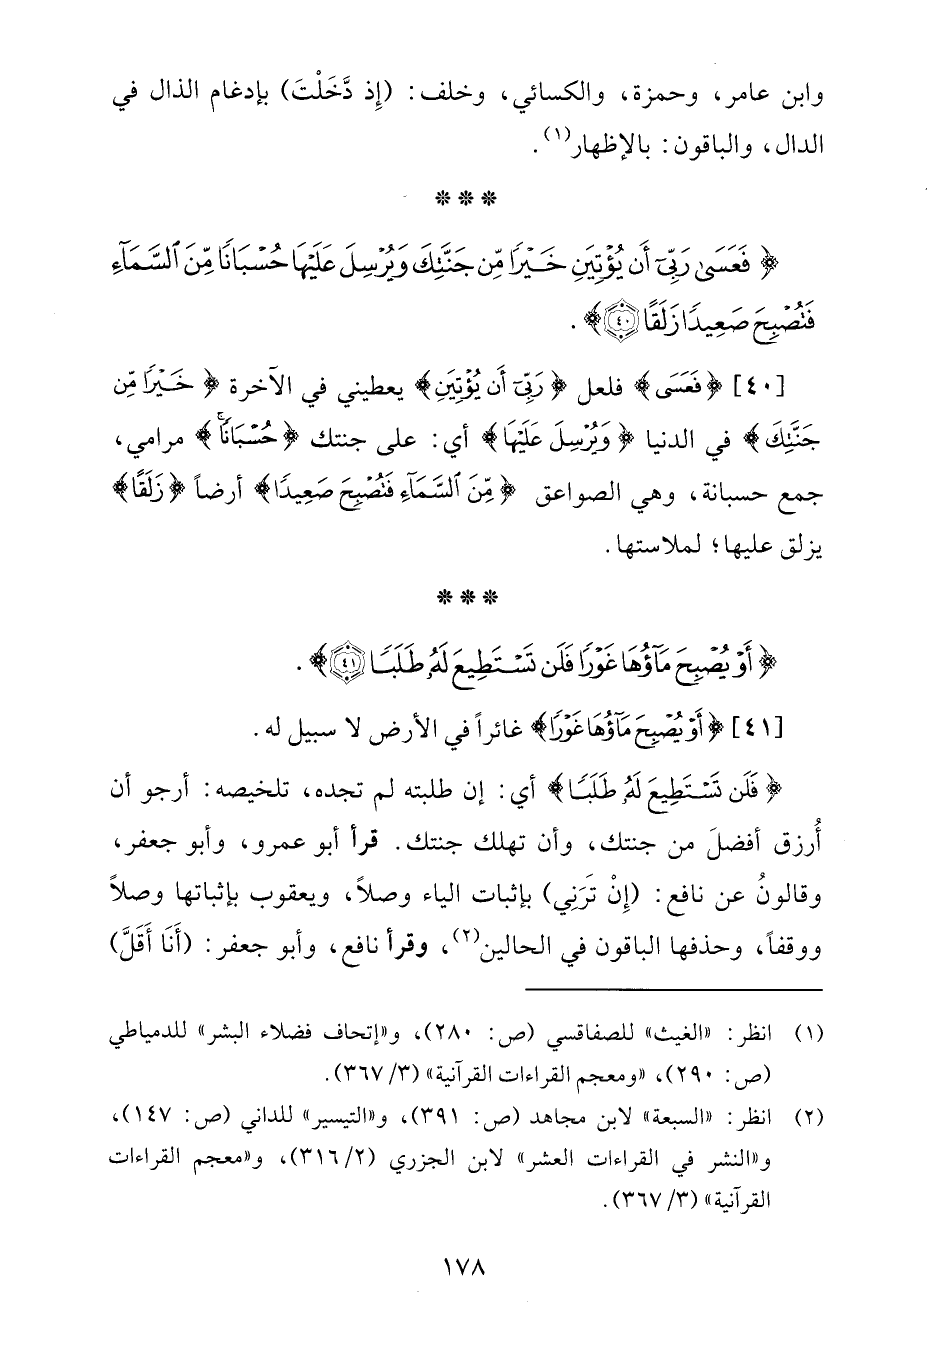 وابن عامر، وحمزة، والكسائي، وخلف: (إِذ دَّخَلْتَ) بإدغام الذال في
الدال، والباقون: بالإظهار(١).
* * *
﴿ فَعَسَىٰ رَبِّيٓ أَن يُؤْتِيَنِ خَيْرًا مِّن جَنَّتِكَ وَيُرْسِلَ عَلَيْهَا حُسْبَانًا مِّنَ ٱلسَّمَآءِ
فَتُصْبِحَ صَعِيدًا زَلَقًا ٤٠﴾ .
[٤٠] ﴿فَعَسَى﴾ فلعل ﴿ رَبِّيٓ أَن يُؤْتِيَنِ﴾ يعطيني في الآخرة ﴿ خَيْرًا مِّن
جَنَّتِكَ﴾ في الدنيا ﴿ وَيُرْسِلَ عَلَيْهَا﴾ أي: على جنتك ﴿حُسْبَانًا﴾ مرامي،
جمع حسبانة، وهي الصواعق ﴿ مِّنَ ٱلسَّمَآءِ فَتُصْبِحَ صَعِيدًا﴾ أرضاً ﴿زَلَقًا﴾
يزلق عليها؛ لملاستها.
* * *
﴿ أَوْ يُصْبِحَ مَآؤُهَا غَوْرًا فَلَن تَسْتَطِيعَ لَهُۥ طَلَبًا ٤١﴾ .
[٤١] ﴿أَوْ يُصْبِحَ مَآؤُهَا غَوْرًا﴾ غائراً في الأرض لا سبيل له.
﴿ فَلَن تَسْتَطِيعَ لَهُۥ طَلَبًا﴾ أي: إن طلبته لم تجده، تلخيصه: أرجو أن
أُرزق أفضلَ من جنتك، وأن تهلك جنتك. قرأ أبو عمرو، وأبو جعفر،
وقالونُ عن نافع: (إِنْ تَرَنِي) بإثبات الياء وصلاً، ويعقوب بإثباتها وصلاً
ووقفاً، وحذفها الباقون في الحالين(٢)، وقرأ نافع، وأبو جعفر: (أَنَا أَقَلَّ)
(١) انظر: «الغيث» للصفاقسي (ص: ٢٨٠)، و«إتحاف فضلاء البشر» للدمياطي
(ص: ٢٩٠)، «ومعجم القراءات القرآنية» (٣/ ٣٦٧).
(٢) انظر: «السبعة» لابن مجاهد (ص: ٣٩١)، و«التيسير» للداني (ص: ١٤٧)،
و«النشر في القراءات العشر» لابن الجزري (٢/ ٣١٦)، و«معجم القراءات
القرآنية» (٣/ ٣٦٧).
١٧٨